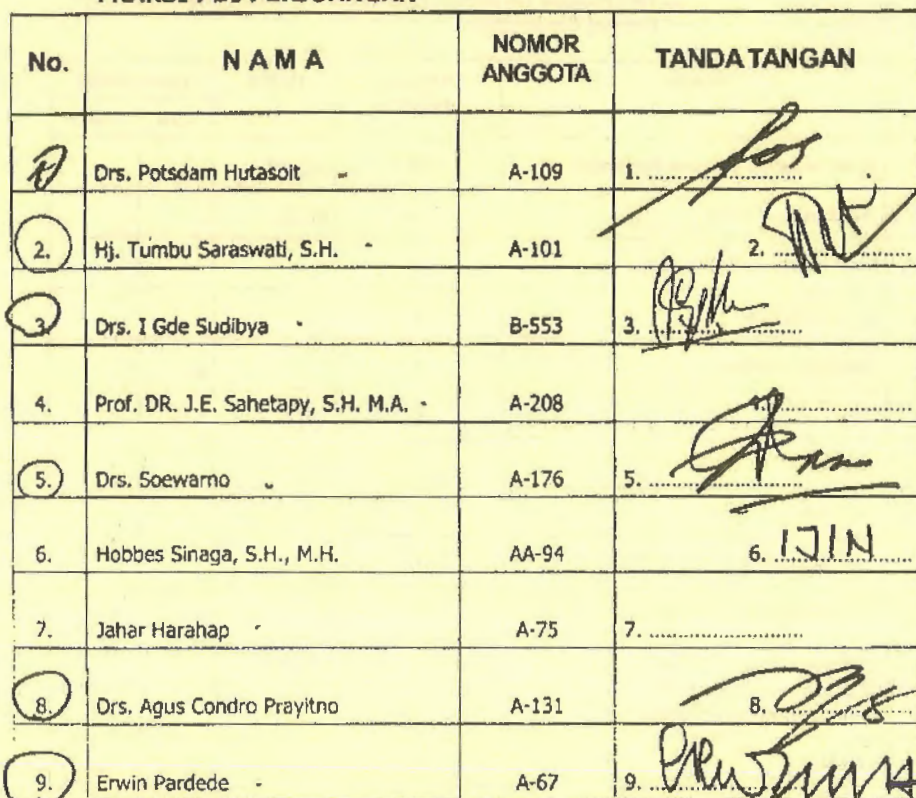 No. N A M A NOMOR ANGGOTA TANDA TANGAN
1. Drs. Potsdam Hutasoit - A-109 1. ....................
2. Hj. Tumbu Saraswati, S.H. - A-101 2. ....................
3. Drs. I Gde Sudibya - B-553 3. ....................
4. Prof. DR. J.E. Sahetapy, S.H. M.A. - A-208 4. ....................
5. Drs. Soewarno A-176 5. ....................
6. Hobbes Sinaga, S.H., M.H. AA-94 6. IJIN
7. Jahar Harahap - A-75 7. ....................
8. Drs. Agus Condro Prayitno A-131 8. ....................
9. Erwin Pardede - A-67 9. ....................